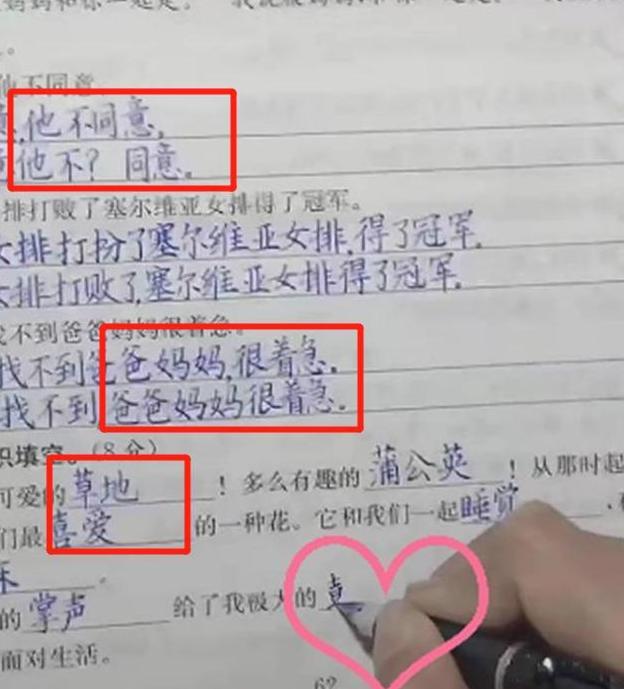 他不同意。
他不同意,
他不? 同意。
排打败了塞尔维亚女排得了冠军。
女排打扮了塞尔维亚女排,得了冠军.
女排打败了,塞尔维亚女排得了冠军.
找不到爸爸妈妈很着急。
找不到爸爸妈妈,很着急.
找不到 爸爸妈妈很着急.
识填空。(8分)
可爱的草地!多么有趣的蒲公英!从那时起
们最喜爱的一种花。它和我们一起睡觉,
的掌声给了我极大的
面对生活。
62